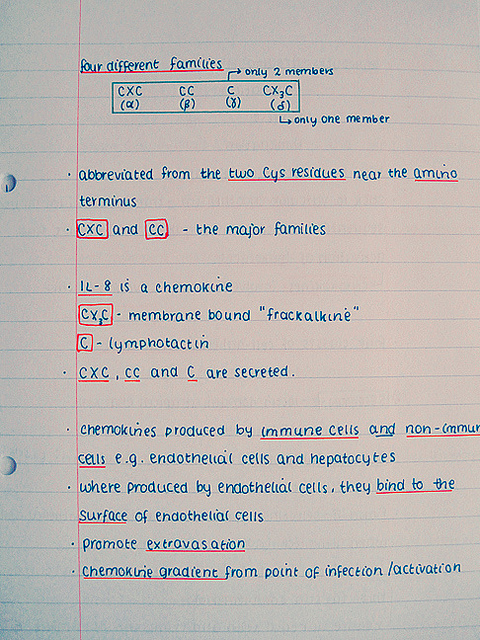 four different families
only 2 members
CXC CC C CX₃C
(α) (β) (γ) (δ)
only one member
· abbreviated from the two Cys residues near the amino
terminus
· CXC and CC - the major families
· IL-8 is a chemokine
CX₃C - membrane bound "frackalkine"
C - lymphotactin
· CXC, CC and C are secreted.
· chemokines produced by immune cells and non-immun
cells e.g. endothelial cells and hepatocytes
· where produced by endothelial cells, they bind to the
surface of endothelial cells
· promote extravasation
· chemokine gradient from point of infection/activation